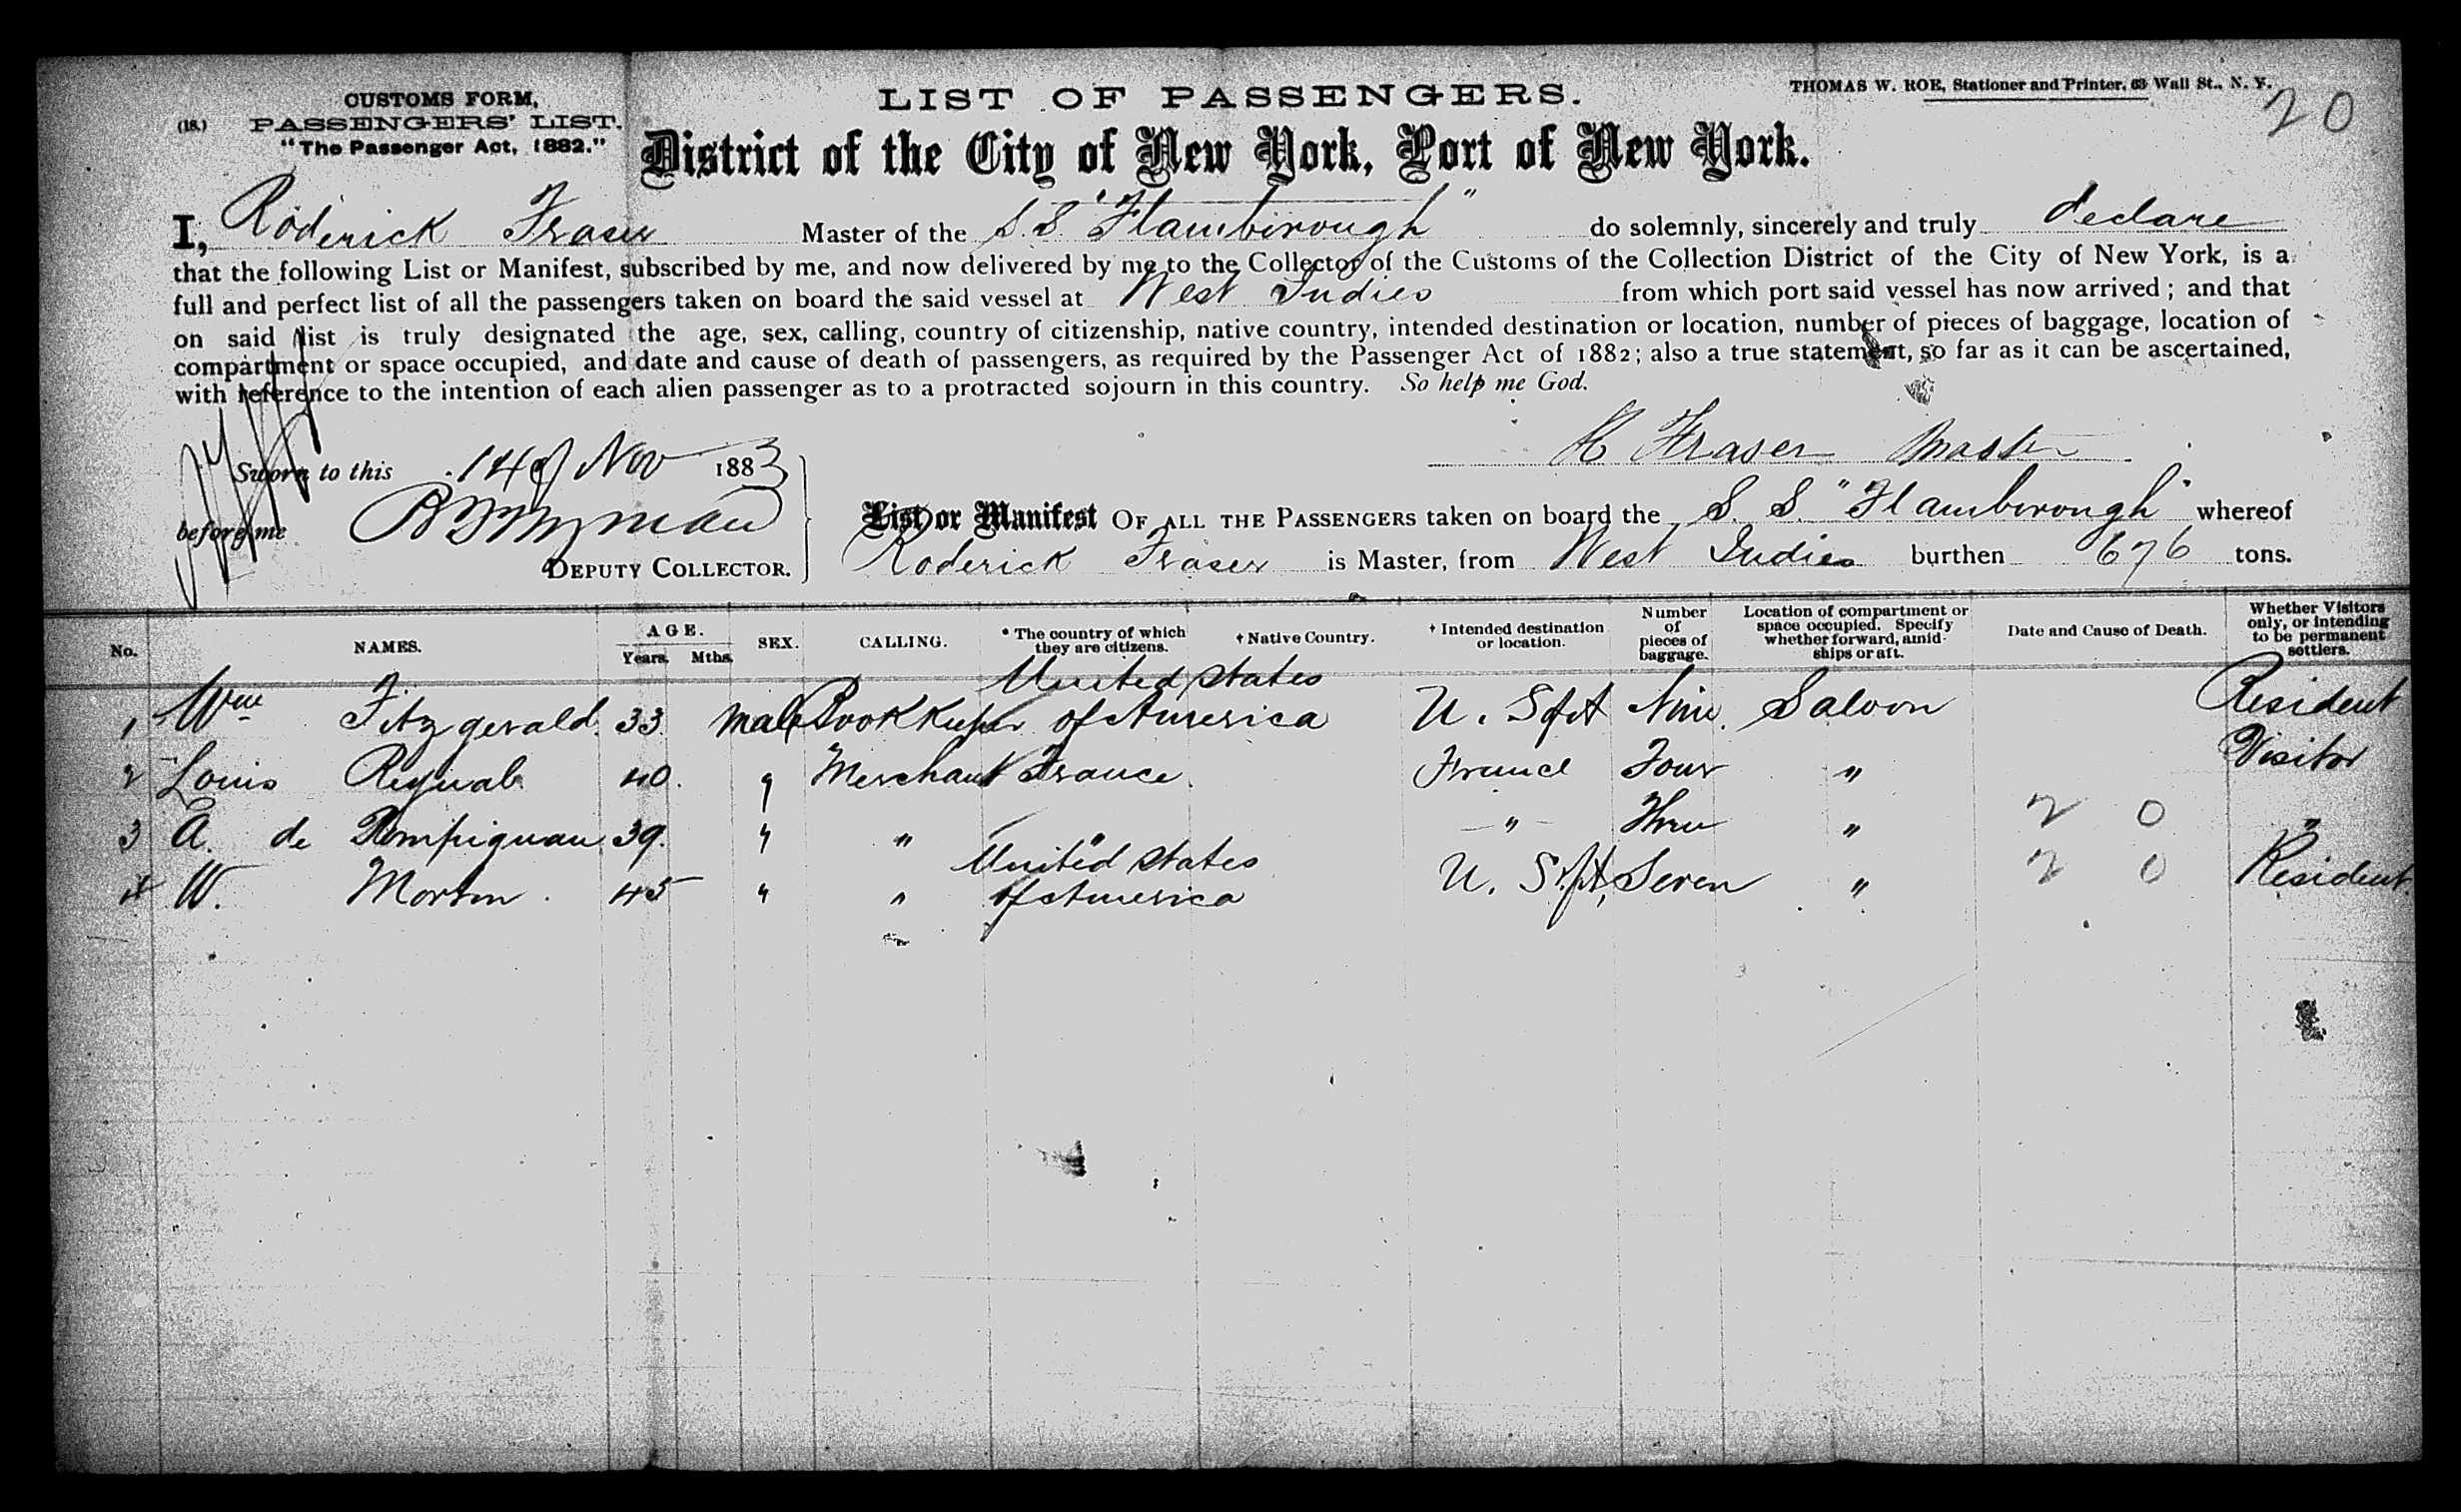 CUSTOMS FORM,
(18.) PASSENGERS' LIST.
"The Passenger Act, 1882."
LIST OF PASSENGERS.
THOMAS W. ROE, Stationer and Printer, 63 Wall St., N. Y.
20
District of the City of New York, Port of New York.
I, Roderick Fraser Master of the S.S. "Flamborough" do solemnly, sincerely and truly declare
that the following List or Manifest, subscribed by me, and now delivered by me to the Collector of the Customs of the Collection District of the City of New York, is a
full and perfect list of all the passengers taken on board the said vessel at West Indies from which port said vessel has now arrived; and that
on said list is truly designated the age, sex, calling, country of citizenship, native country, intended destination or location, number of pieces of baggage, location of
compartment or space occupied, and date and cause of death of passengers, as required by the Passenger Act of 1882; also a true statement, so far as it can be ascertained,
with reference to the intention of each alien passenger as to a protracted sojourn in this country. So help me God.
R Fraser Master
Sworn to this 14 of Nov 1883
before me
DEPUTY COLLECTOR.
List or Manifest OF ALL THE PASSENGERS taken on board the S. S. "Flamborough" whereof
Roderick Fraser is Master, from West Indies burthen 676 tons.
No. NAMES. AGE. Years. Mths. SEX. CALLING. * The country of which they are citizens. † Native Country. † Intended destination or location. Number of pieces of baggage. Location of compartment or space occupied. Specify whether forward, amidships or aft. Date and Cause of Death. Whether Visitors only, or intending to be permanent settlers.
1 Wm F. Fitzgerald. 33. male Bookkeeper United States of America U. S of A Nine. Saloon Resident
2 Louis 40. " Merchant France. France Four " Visitor
3 A. de Pompignan 39. " " " " Three " 2 0 "
4 W. Morton. 45 " " United States of America U. S. of A, Seven " 2 0 Resident.